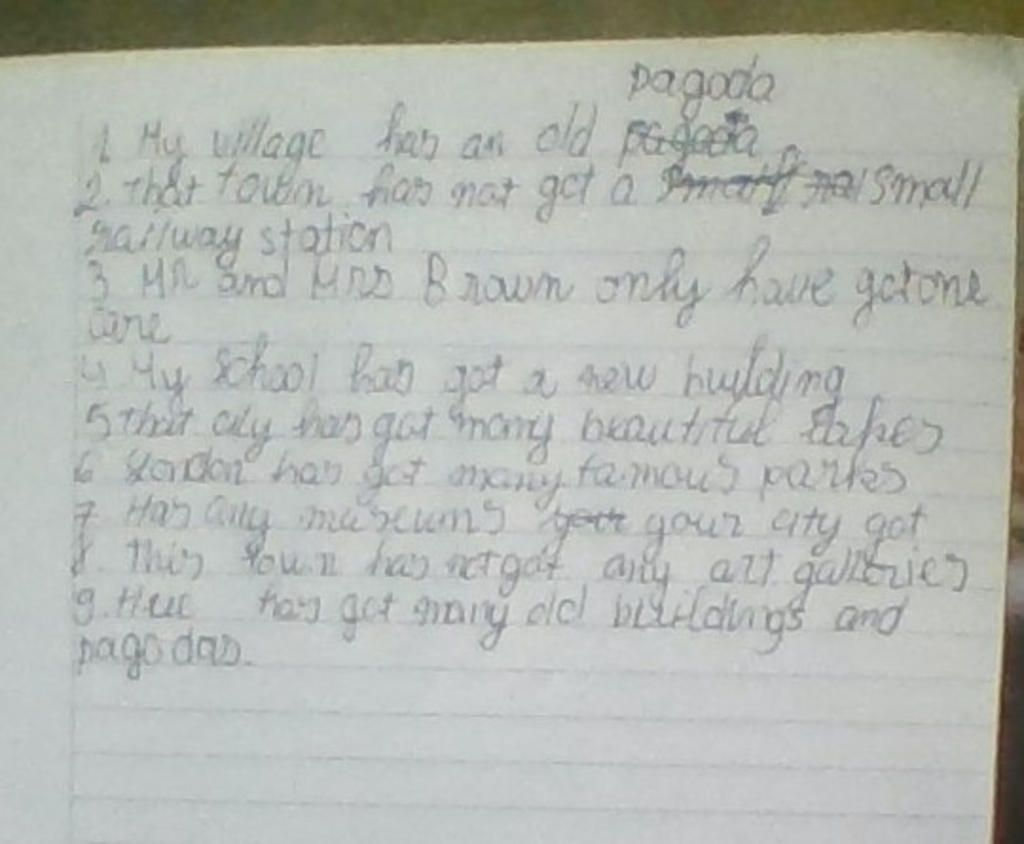 pagoda
1 My village has an old pagoda
2. that town has not got a small
railway station
3 Mr and Mrs Brown only have got one
care
4 My school has got a new building
5 that city has got many beautiful
6 London has got many famous parkes
7 Has any museums your city got
8. This town has not got any art galleries
9. Hue has got many old buildings and
pagodas.